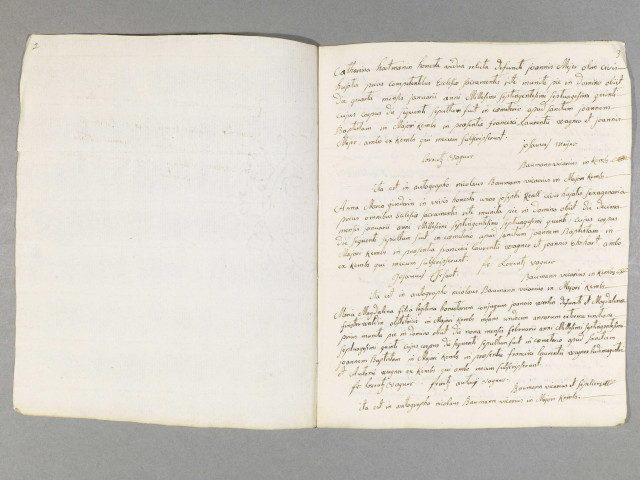 2.
3
Catharina hartmanin honesta vidua relicta defuncti joannis Mejer olim civis
hujatis prius omnibus Ecclesiæ sacramentis rite munita pie in domino obiit
die quarta mensis januarii anni Millesimi septingentesimi septuagesimi quinti
cujus corpus die sequenti sepultum fuit in cœmeterio apud sanctum joannem
Baptistam in Majori Kembs in præsentia francisci Laurentii wagner et joannis
Mejer ambo ex Kembs qui mecum subscripserunt.
johannes meijer
Lorentz wagner
Baumann vicarius in Kembs
Ita est in autographo nicolaus Baumann vicarius in Majori Kembs.
Anna Maria in vivis honesta uxor josephi civis hujatis
prius omnibus Ecclesiæ sacramentis rite munita pie in domino obiit die decima
mensis januarii anni Millesimi septingentesimi septuagesimi quinti cujus corpus
die sequenti sepultum fuit in cœmeterio apud sanctum joannem Baptistam in
Majori Kembs in præsentia francisci laurentii wagner et joannis ambo
ex Kembs qui mecum subscripserunt.
fr Lorentz wagner
Baumann vicarius in Kembs
Ita est in autographo nicolaus Baumann vicarius in Majori Kembs.
Maria Magdalena filia legitima honestorum conjugum joannis defuncti et Magdalena
in Majori Kembs annorum extrema unctione
prius munita pie in domino obiit die nona mensis februarii anni Millesimi septingentesimi
septuagesimi quinti cujus corpus die sequenti sepultum fuit in cœmeterio apud sanctum
joannem Baptistam in Majori Kembs in præsentia francisci laurentii wagner
et wagner ex Kembs qui ambo mecum subscripserunt.
fr Lorentz wagner frantz wagner
Baumann vicarius
Ita est in autographo nicolaus Baumann vicarius in Majori Kembs.